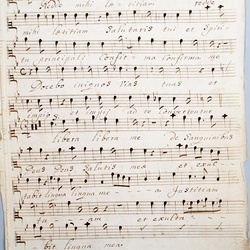 Redde mihi la - titiam redde
mihi laetitiam Salutaris tui et Spiri
tu principali confir - ma confirma me
Docebo iniquos Vias tuas et
impij et impij ad te convertentur
libera libera me de Sanguinibus
Deus Deus Salutis mea et exul -
tabit lingua lingua me - - a Justitiam
tu - am et exulta -
bit lingua mea